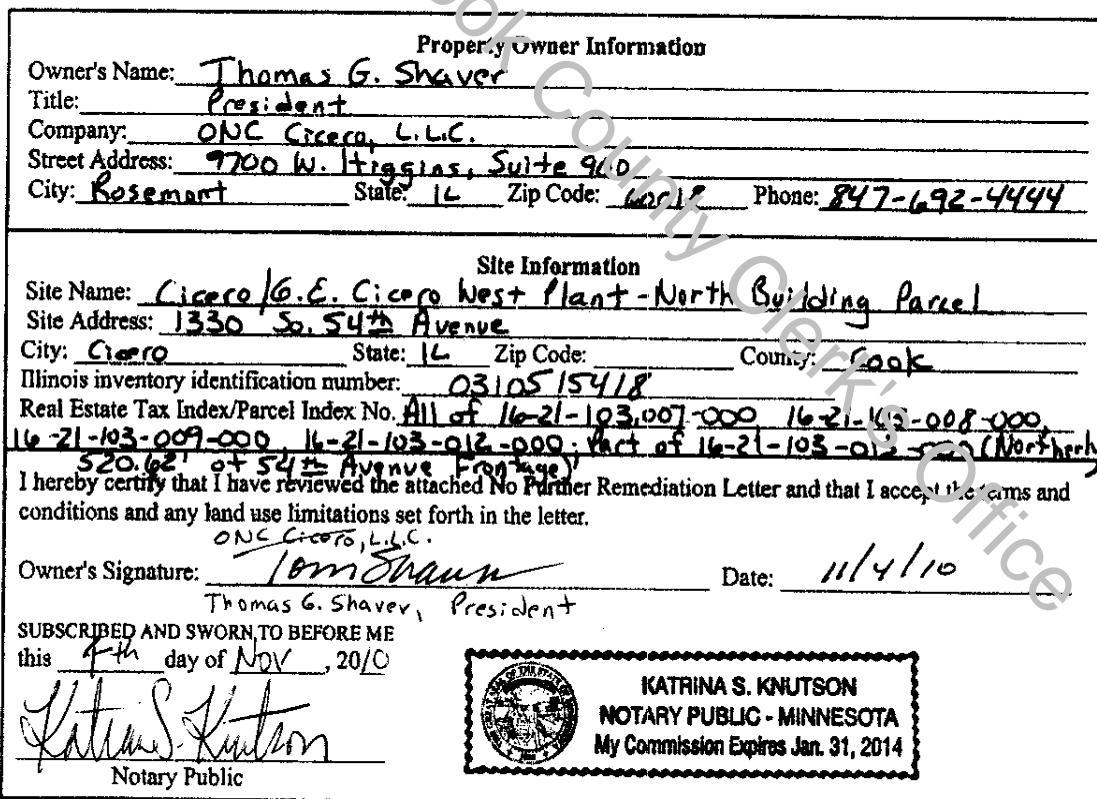 Property Owner Information
Owner's Name: Thomas G. Shaver
Title: President
Company: ONC Cicero, L.L.C.
Street Address: 9700 W. Higgins, Suite
City: Rosemont State: IL Zip Code: Phone: 847-692-4444
Site Information
Site Name: Cicero/G.E. Cicero West Plant-North Building Parcel
Site Address: 1330 So. 54th Avenue
City: Cicero State: IL Zip Code: County: Cook
Illinois inventory identification number: 0310515418
Real Estate Tax Index/Parcel Index No. All of 16-21-103-007-000 16-21-103-008-000,
16-21-103-009-000, 16-21-103-012-000; Part of (Northerly
520.62' of 54th Avenue Frontage)
I hereby certify that I have reviewed the attached No Further Remediation Letter and that I accept the terms and
conditions and any land use limitations set forth in the letter.
ONC Cicero, L.L.C.
Owner's Signature: Tom Shaver Date: 11/4/10
Thomas G. Shaver, President
SUBSCRIBED AND SWORN TO BEFORE ME
this 4th day of Nov, 2010
Katrina S. Knutson
Notary Public
KATRINA S. KNUTSON
NOTARY PUBLIC - MINNESOTA
My Commission Expires Jan. 31, 2014
Cook County Clerk's Office